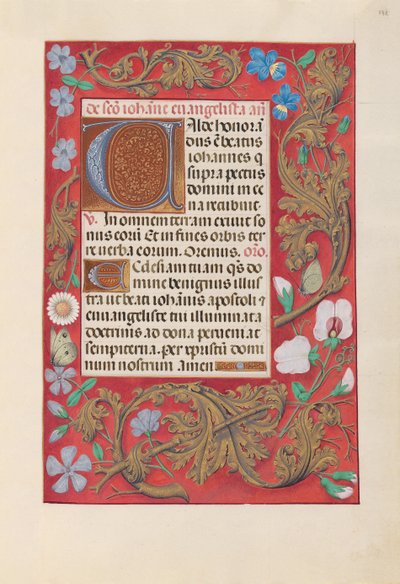 de scō iohāne euangelista añ
Valde honorā
dus ē beatus
iohannes q
supra pectus
domini in ce
na recubuit
V. In omnem terram exivit so
nus eorū Et in fines orbis ter
re verba eorum. Oremus. orō.
Ecclesiam tuam qs do
mine benignus illus
tra ut beati iohānis apostoli et
euangeliste illuminata
doctrinis ad dona perveniat
sempiterna. per xpistū domi
num nostrum amen